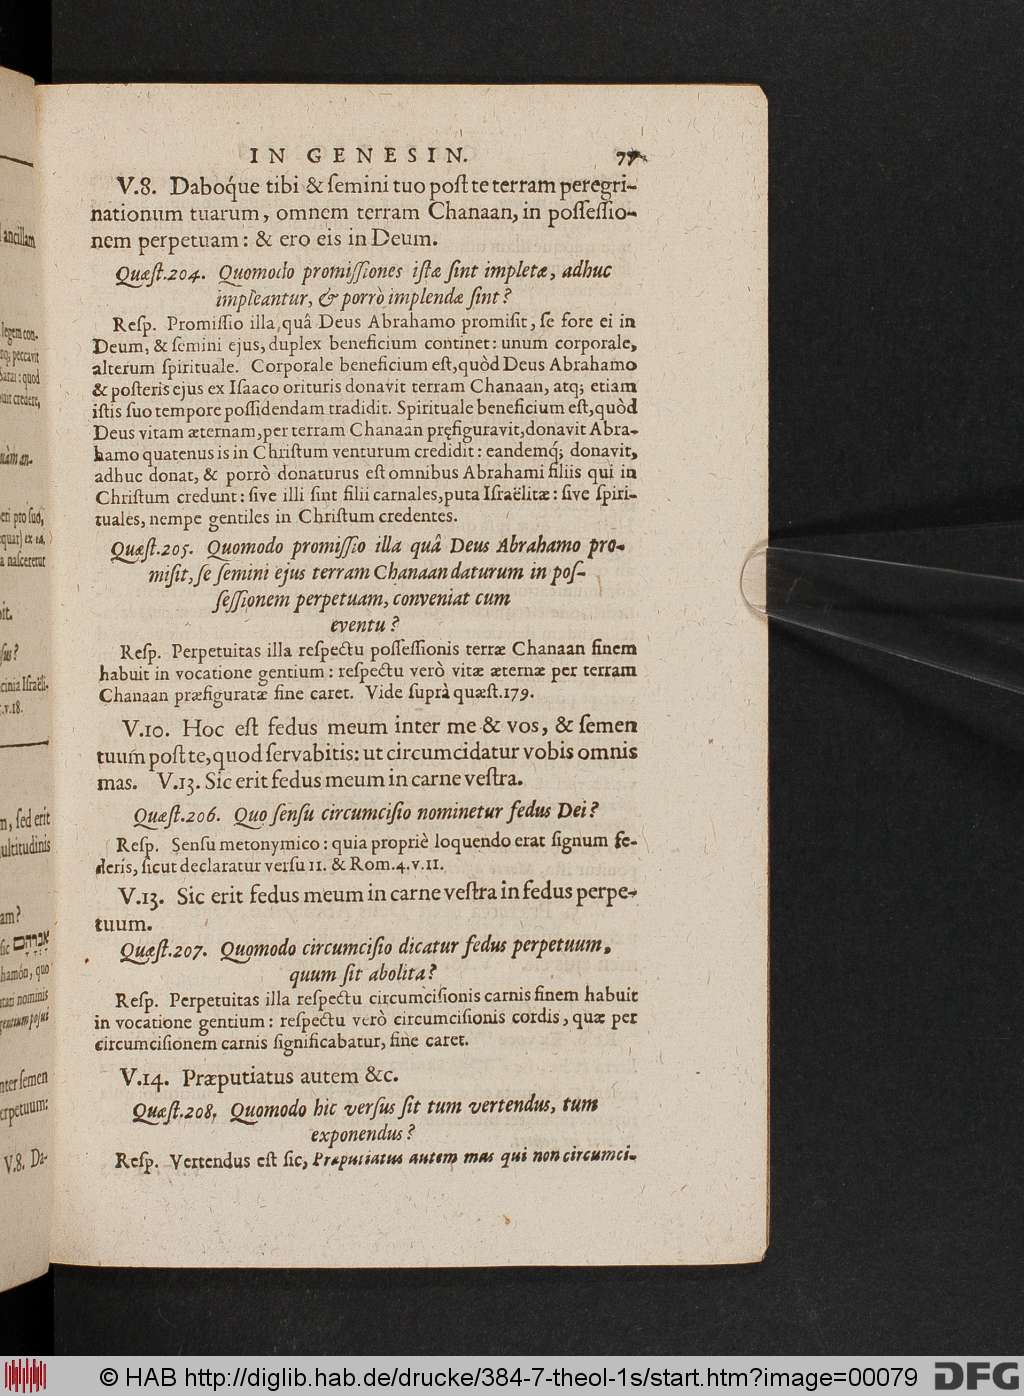 IN GENESIN. 77
V.8. Daboq́ue tibi & ſemini tuo poſt te terram peregri-
nationum tuarum, omnem terram Chanaan, in poſſeſſio-
nem perpetuam: & ero eis in Deum.
Quæſt.204. Quomodo promiſſiones iſtæ ſint impletæ, adhuc
impleantur, & porrò implendæ ſint?
Reſp. Promiſſio illa, quâ Deus Abrahamo promiſit, ſe fore ei in
Deum, & ſemini ejus, duplex beneficium continet: unum corporale,
alterum ſpirituale. Corporale beneficium eſt, quòd Deus Abrahamo
& poſteris ejus ex Iſaaco orituris donavit terram Chanaan, atq; etiam
iſtis ſuo tempore poſſidendam tradidit. Spirituale beneficium eſt, quòd
Deus vitam æternam, per terram Chanaan pręfiguravit, donavit Abra-
hamo quatenus is in Chriſtum venturum credidit: eandemq́; donavit,
adhuc donat, & porrò donaturus eſt omnibus Abrahami filiis qui in
Chriſtum credunt: ſive illi ſint filii carnales, puta Iſraëlitæ: ſive ſpiri-
tuales, nempe gentiles in Chriſtum credentes.
Quæſt.205. Quomodo promiſſio illa quâ Deus Abrahamo pro-
miſit, ſe ſemini ejus terram Chanaan daturum in poſ-
ſeſſionem perpetuam, conveniat cum
eventu?
Reſp. Perpetuitas illa reſpectu poſſeſſionis terræ Chanaan finem
habuit in vocatione gentium: reſpectu verò vitæ æternæ per terram
Chanaan præfiguratæ fine caret. Vide ſuprà quæſt.179.
V.10. Hoc eſt fedus meum inter me & vos, & ſemen
tuum poſt te, quod ſervabitis: ut circumcidatur vobis omnis
mas. V.13. Sic erit fedus meum in carne veſtra.
Quæſt.206. Quo ſenſu circumciſio nominetur fedus Dei?
Reſp. Senſu metonymico: quia propriè loquendo erat ſignum fe-
deris, ſicut declaratur verſu 11. & Rom.4.v.11.
V.13. Sic erit fedus meum in carne veſtra in fedus perpe-
tuum.
Quæſt.207. Quomodo circumciſio dicatur fedus perpetuum,
quum ſit abolita?
Reſp. Perpetuitas illa reſpectu circumciſionis carnis finem habuit
in vocatione gentium: reſpectu verò circumciſionis cordis, quæ per
circumciſionem carnis ſignificabatur, fine caret.
V.14. Præputiatus autem &c.
Quæſt.208. Quomodo hic verſus ſit tum vertendus, tum
exponendus?
Reſp. Vertendus eſt ſic, Præputiatus autem mas qui non circumci-
ancillam
legem con-
peccavit
Sarai: quod
credere,
an-
pro ſuo,
naſceretur
cinia Iſraëli-
v.18.
n, ſed erit
ultitudinis
am?
ſic אברהם
hamôn, quo
nominis
gentium poſui
nter ſemen
erpetuum:
V.8. Da-
© HAB http://diglib.hab.de/drucke/384-7-theol-1s/start.htm?image=00079
DFG